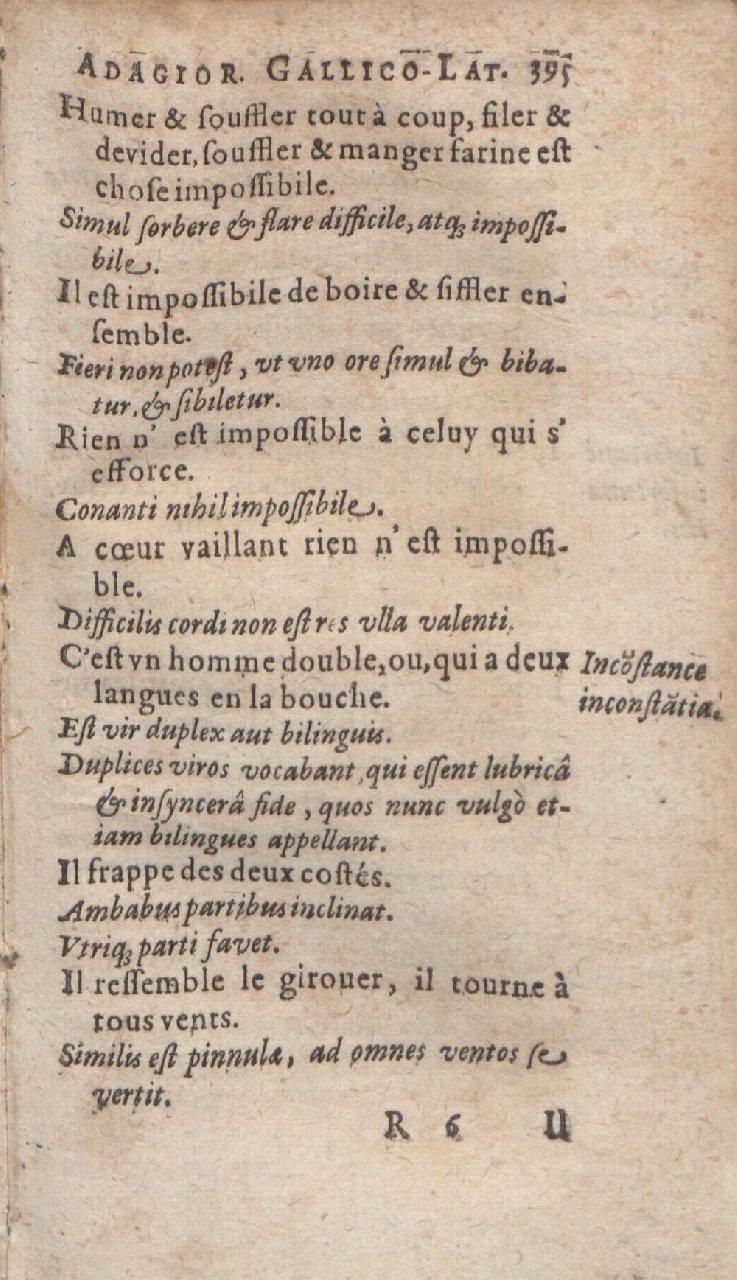 ADAGIOR. GALLICO-LAT. 395
Humer & souffler tout à coup, filer &
devider, souffler & manger farine est
chose impossibile.
Simul sorbere & flare difficile, atq; impossi-
bile.
Il est impossibile de boire & siffler en-
semble.
Fieri non potest, vt vno ore simul & biba-
tur, & sibiletur.
Rien n' est impossible à celuy qui s'
efforce.
Conanti nihil impossibile.
A cœur vaillant rien n'est impossi-
ble.
Difficilis cordi non est res vlla valenti.
C'est vn homme double, ou, qui a deux
langues en la bouche.
Incõstance
inconstãtia.
Est vir duplex aut bilinguis.
Duplices viros vocabant, qui essent lubricâ
& insyncerâ fide, quos nunc vulgò et-
iam bilingues appellant.
Il frappe des deux costés.
Ambabus partibus inclinat.
Vtriq; parti favet.
Il ressemble le girouer, il tourne à
tous vents.
Similis est pinnulæ, ad omnes ventos se
vertit.
R 6 Il